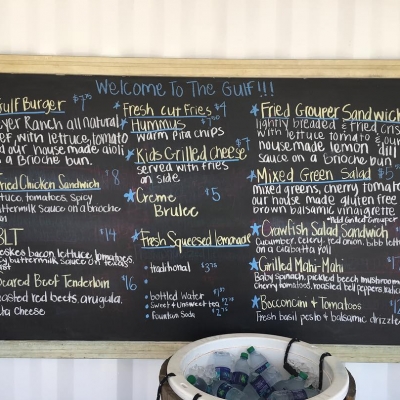 Welcome To The Gulf!!!
Gulf Burger $7.75
Meyer Ranch all natural
beef with lettuce, tomato
and our housemade aioli
on a Brioche bun.
Fried Chicken Sandwich $8
lettuce, tomatoes, Spicy
buttermilk Sauce on a brioche
BLT $14
bacon, lettuce, tomatoes,
buttermilk sauce on Texas
Seared Beef Tenderloin $16
roasted red beets, arugula,
Cheese
Fresh cut Fries $4
Hummus
warm pita chips
Kids Grilled cheese $7
served with fries
on side.
Creme $5
Brulee
Fresh Squeesed lemonade
traditional $3.75
bottled Water
Sweet & Unsweet tea
Fountain Soda $2.75
Fried Grouper Sandwich
lightly breaded & fried crisp
with lettuce tomato & our
housemade lemon dill
sauce on a Brioche bun!
Mixed Green Salad
mixed greens, cherry tomato
our house made gluten free
brown balsamic vinaigrette
Crawfish Salad Sandwich
Cucumber, celery, red onion, bibb lettuce
on a Ciabatta roll
Grilled Mahi-Mahi
Baby spinach, pickled beech mushrooms
Cherry tomatoes, roasted bell peppers
Bocconcini & Tomatoes
Fresh basil pesto & balsamic drizzle